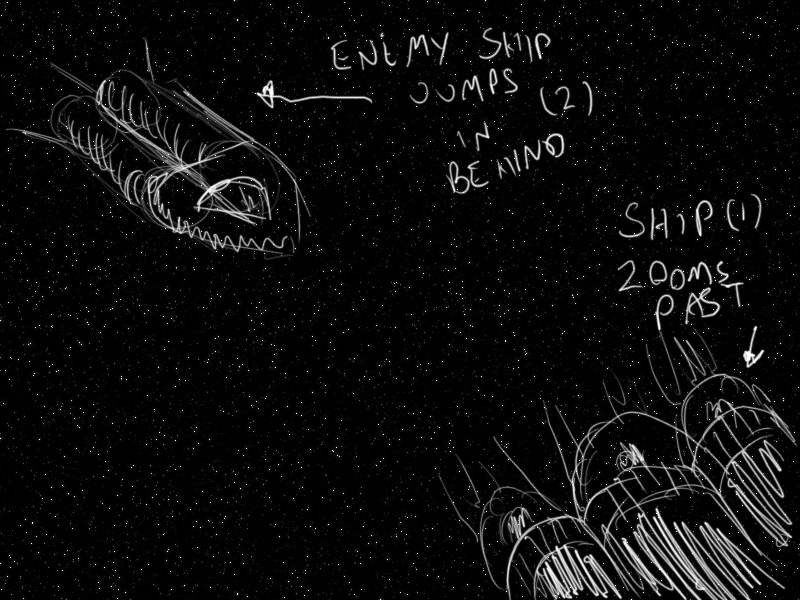 ENEMY SHIP
JUMPS (2)
IN
BEHIND
SHIP (1)
ZOOMS
PAST